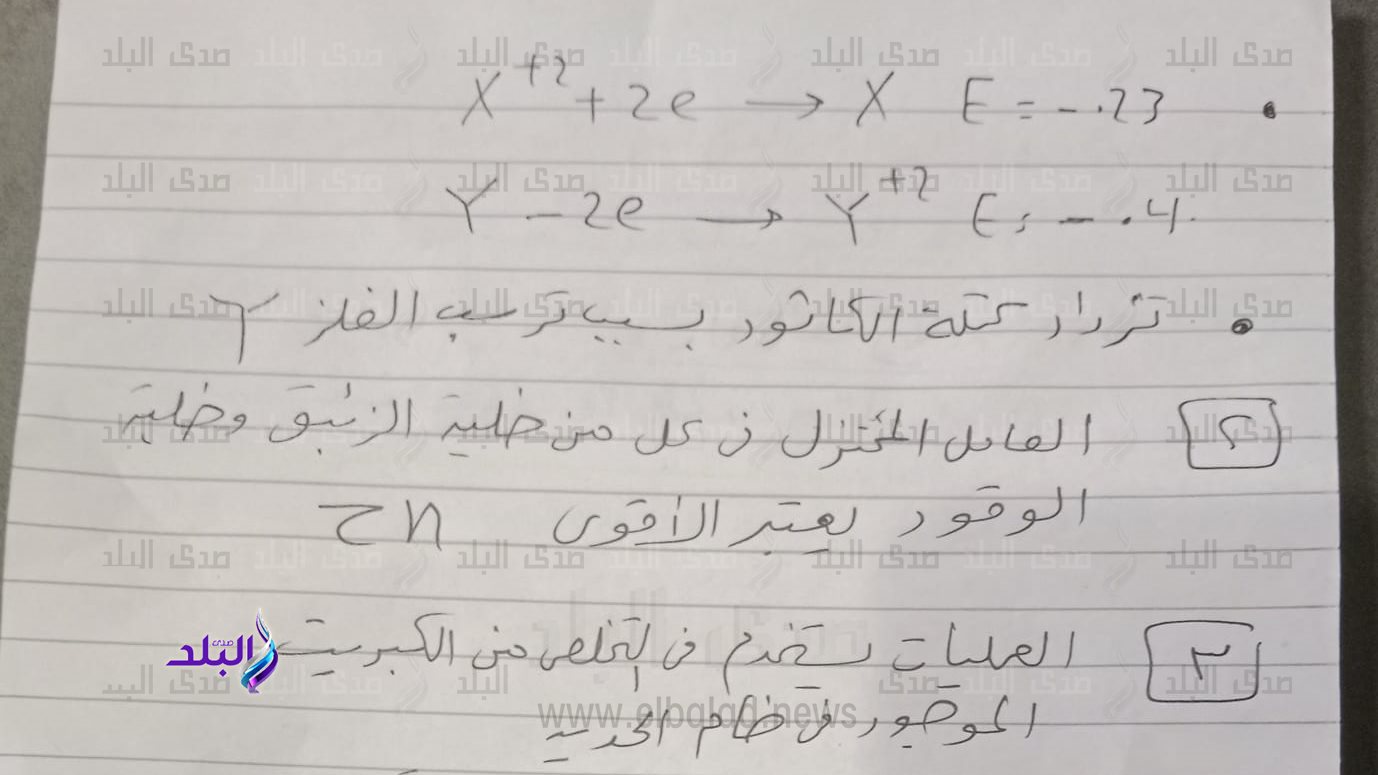 X⁺² + 2e → X E = -.23
Y - 2e → Y⁺² E = -.4
• تزداد كتلة الكاثود بسبب ترسب الفلز Y
٢ العامل المختزل في كل من خلية الزئبق وخلية
الوقود يعتبر الأقوى Zn
٣ العمليات يستخدم في التخلص من الكبريت
الموجود في خام الحديد
صدى البلد
www.elbalad.news